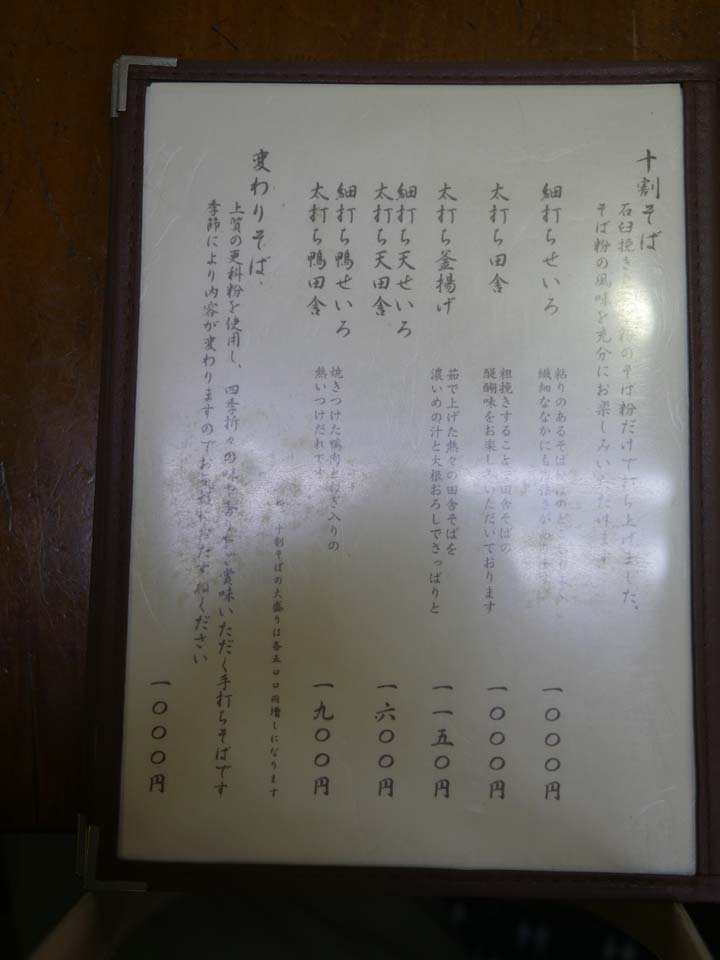 十割そば
石臼挽き のそば粉だけで打ち上げました。
そば粉の風味を充分にお楽しみいただけます
細打ちせいろ
粘りのあるそば
繊細ななかにも
一〇〇〇円
太打ち田舎
粗挽きすること 田舎そばの
醍醐味をお楽しみいただいております
一〇〇〇円
太打ち釜揚げ
茹で上げた熱々の田舎そばを
濃いめの汁と大根おろしでさっぱりと
一一五〇円
細打ち天せいろ
太打ち天田舎
一六〇〇円
細打ち鴨せいろ
太打ち鴨田舎
焼きつけた鴨肉とねぎ入りの
熱いつけだれです
一九〇〇円
十割そばの大盛りは各五〇〇円増しになります
変わりそば、
上質の更科粉を使用し、四季折々の味 賞味いただく手打ちそばです
季節により内容が変わりますのでお気軽におたずねください
一〇〇〇円